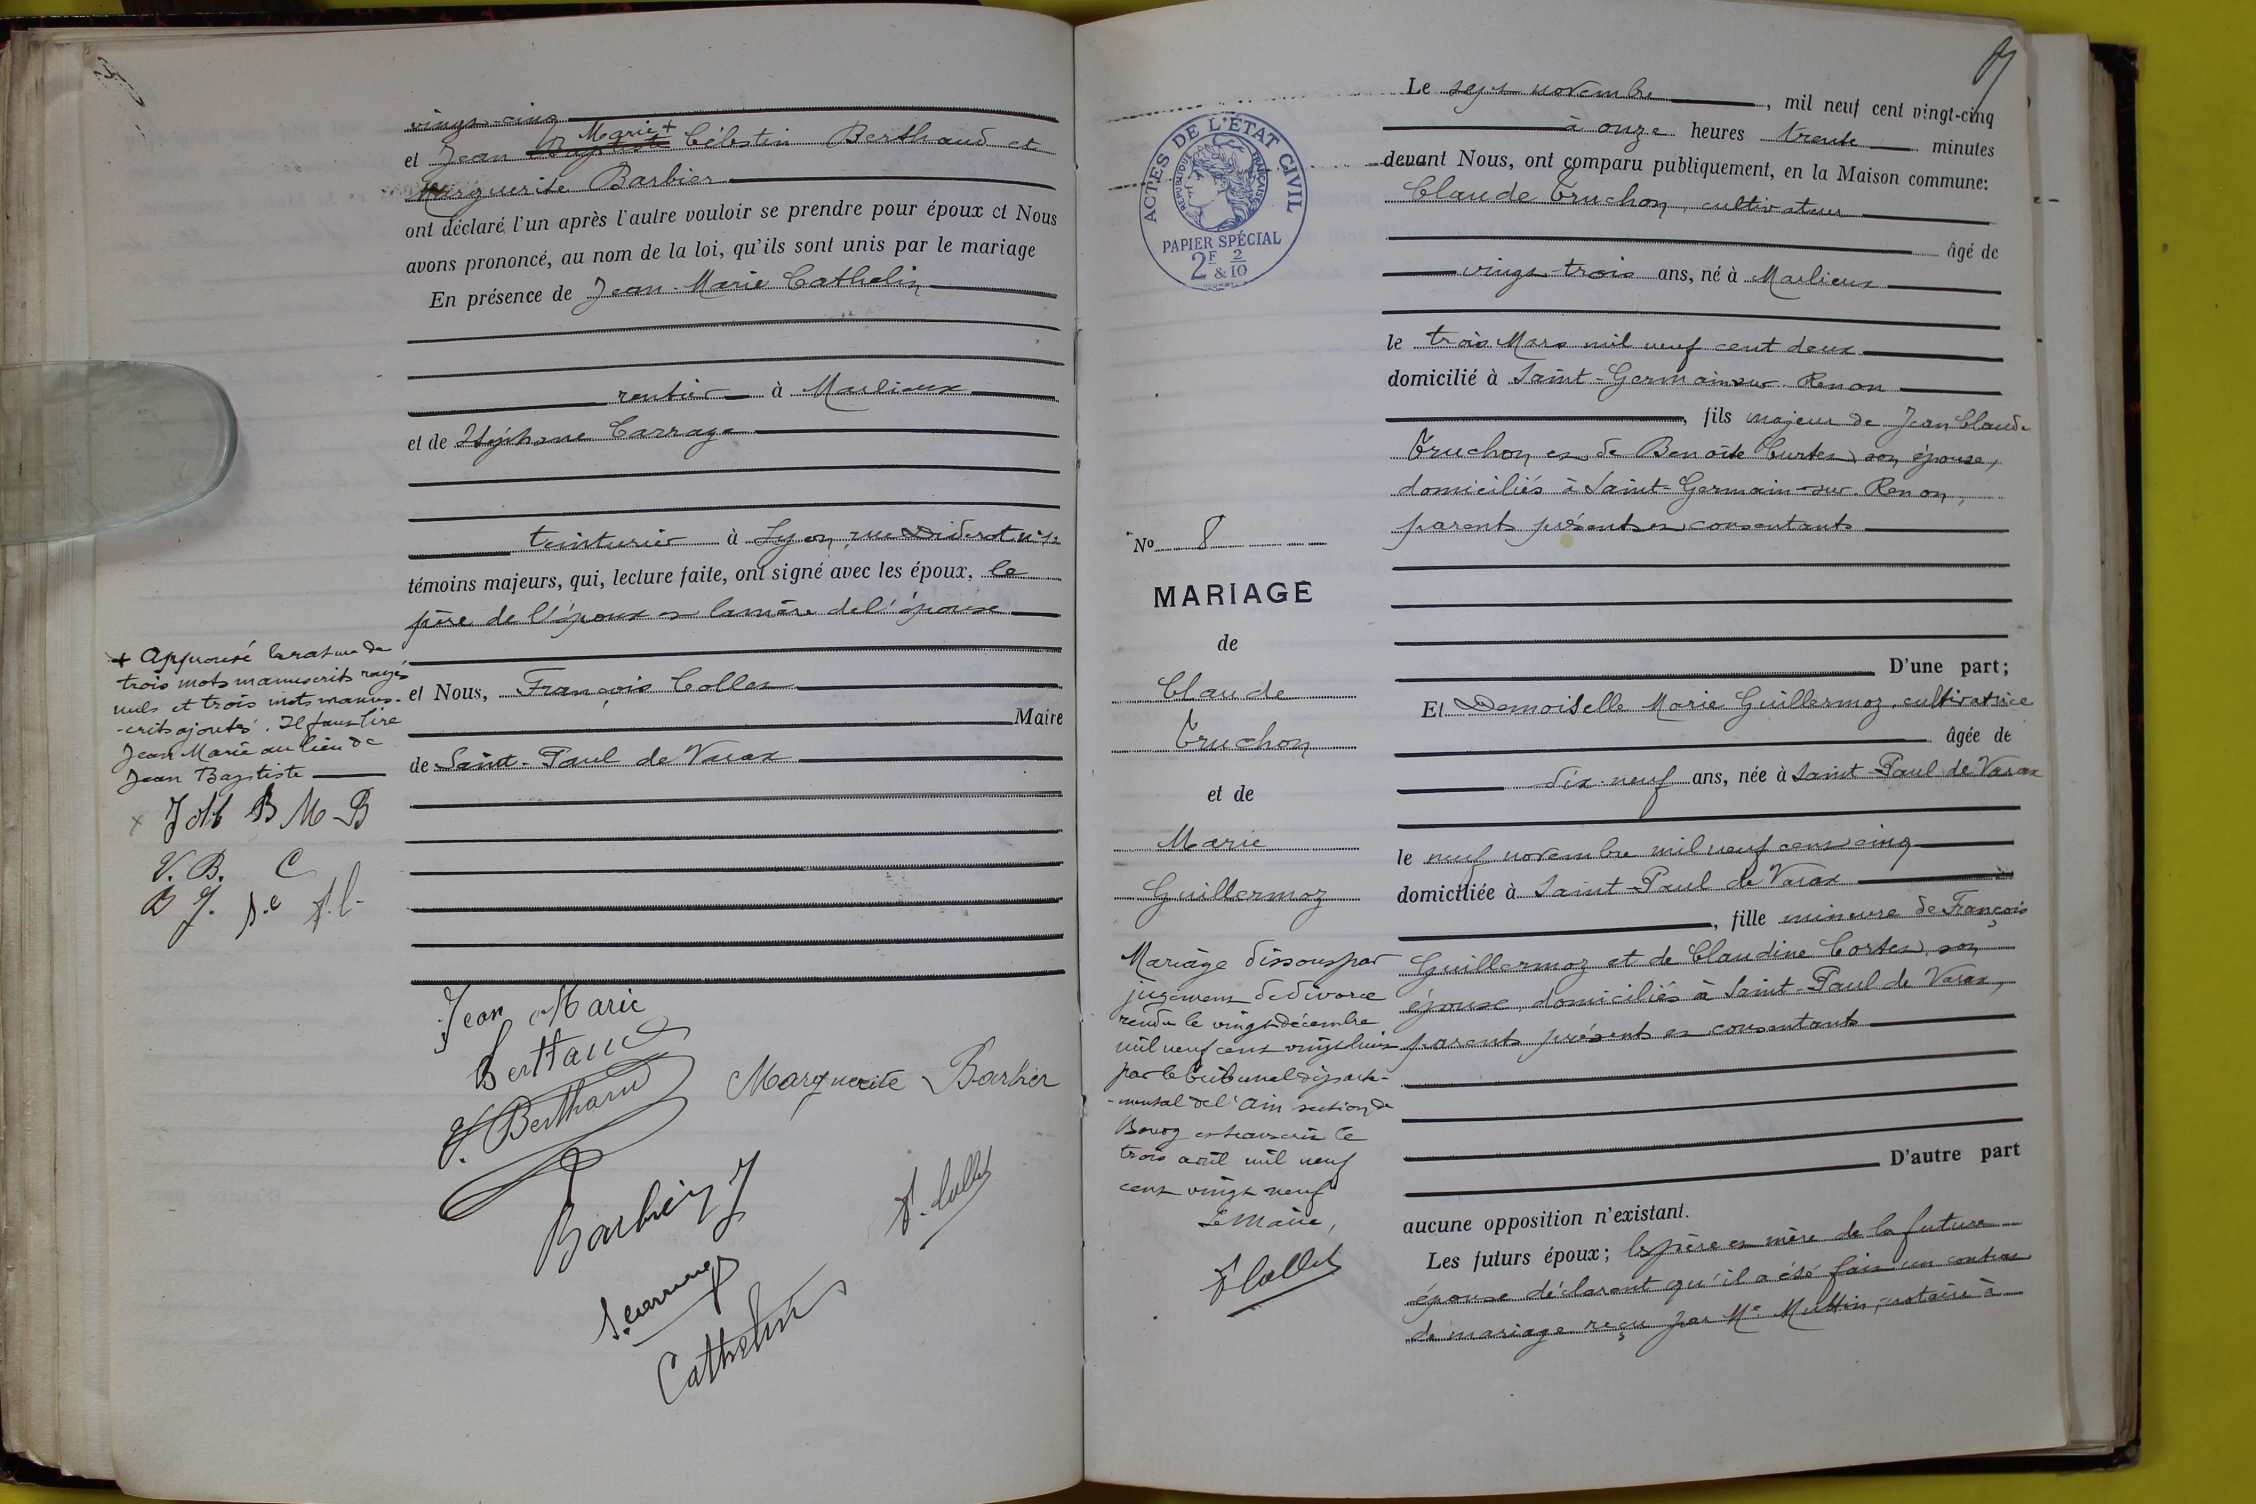 vingt-cinq
Marie +
et Jean Baptiste Célestin Berthaud et
Marguerite Barbier
ont déclaré l'un après l'autre vouloir se prendre pour époux et Nous
avons prononcé, au nom de la loi, qu'ils sont unis par le mariage
En présence de Jean-Marie Cathelin
rentier à Marlieux
et de Stéphane Carrage
teinturier à Lyon, rue Diderot n° 12
témoins majeurs, qui, lecture faite, ont signé avec les époux, le
père de l'époux et la mère de l'épouse
et Nous, François Collet
Maire
de Saint-Paul de Varax
+ Approuvé la rature de
trois mots manuscrits rayés
nuls et trois mots manus-
-crits ajoutés. Il faut lire
Jean Marie au lieu de
Jean Baptiste
B M B
V. B. C
B J. s.c f.c.
Jean Marie
Berthaud
J. Berthaud
Marguerite Barbier
Barbier J
F. Collet
S. Carrage
Cathelin
Le sept novembre, mil neuf cent vingt-cinq
à onze heures trente minutes
devant Nous, ont comparu publiquement, en la Maison commune:
Claude Truchon, cultivateur
âgé de
vingt-trois ans, né à Marlieux
le trois Mars mil neuf cent deux
domicilié à Saint-Germain sur Renon
, fils majeur de Jean Claude
Truchon et de Benoîte Curtet, son épouse,
domiciliés à Saint-Germain-sur-Renon,
parents présents et consentants
D'une part;
Et Demoiselle Marie Guillermoz, cultivatrice
âgée de
dix-neuf ans, née à Saint-Paul de Varax
le neuf novembre mil neuf cent cinq
domiciliée à Saint-Paul de Varax
, fille mineure de François
Guillermoz et de Claudine Cortet, son
épouse, domiciliés à Saint-Paul de Varax,
parents présents et consentants
D'autre part
aucune opposition n'existant.
Les futurs époux; les père et mère de la future
épouse déclarent qu'il a été fait un contrat
de mariage reçu par Me Muttin, notaire à
ACTES DE L'ÉTAT CIVIL
RÉPUBLIQUE FRANÇAISE
PAPIER SPÉCIAL
2F & 2/10
No 8
MARIAGE
de
Claude
Truchon
et de
Marie
Guillermoz
Mariage dissous par
jugement de divorce
rendu le vingt décembre
mil neuf cent vingt huit
par le tribunal départe-
-mental de l'Ain section de
Bourg et transcrit le
trois avril mil neuf
cent vingt neuf
Le Maire,
F Collet